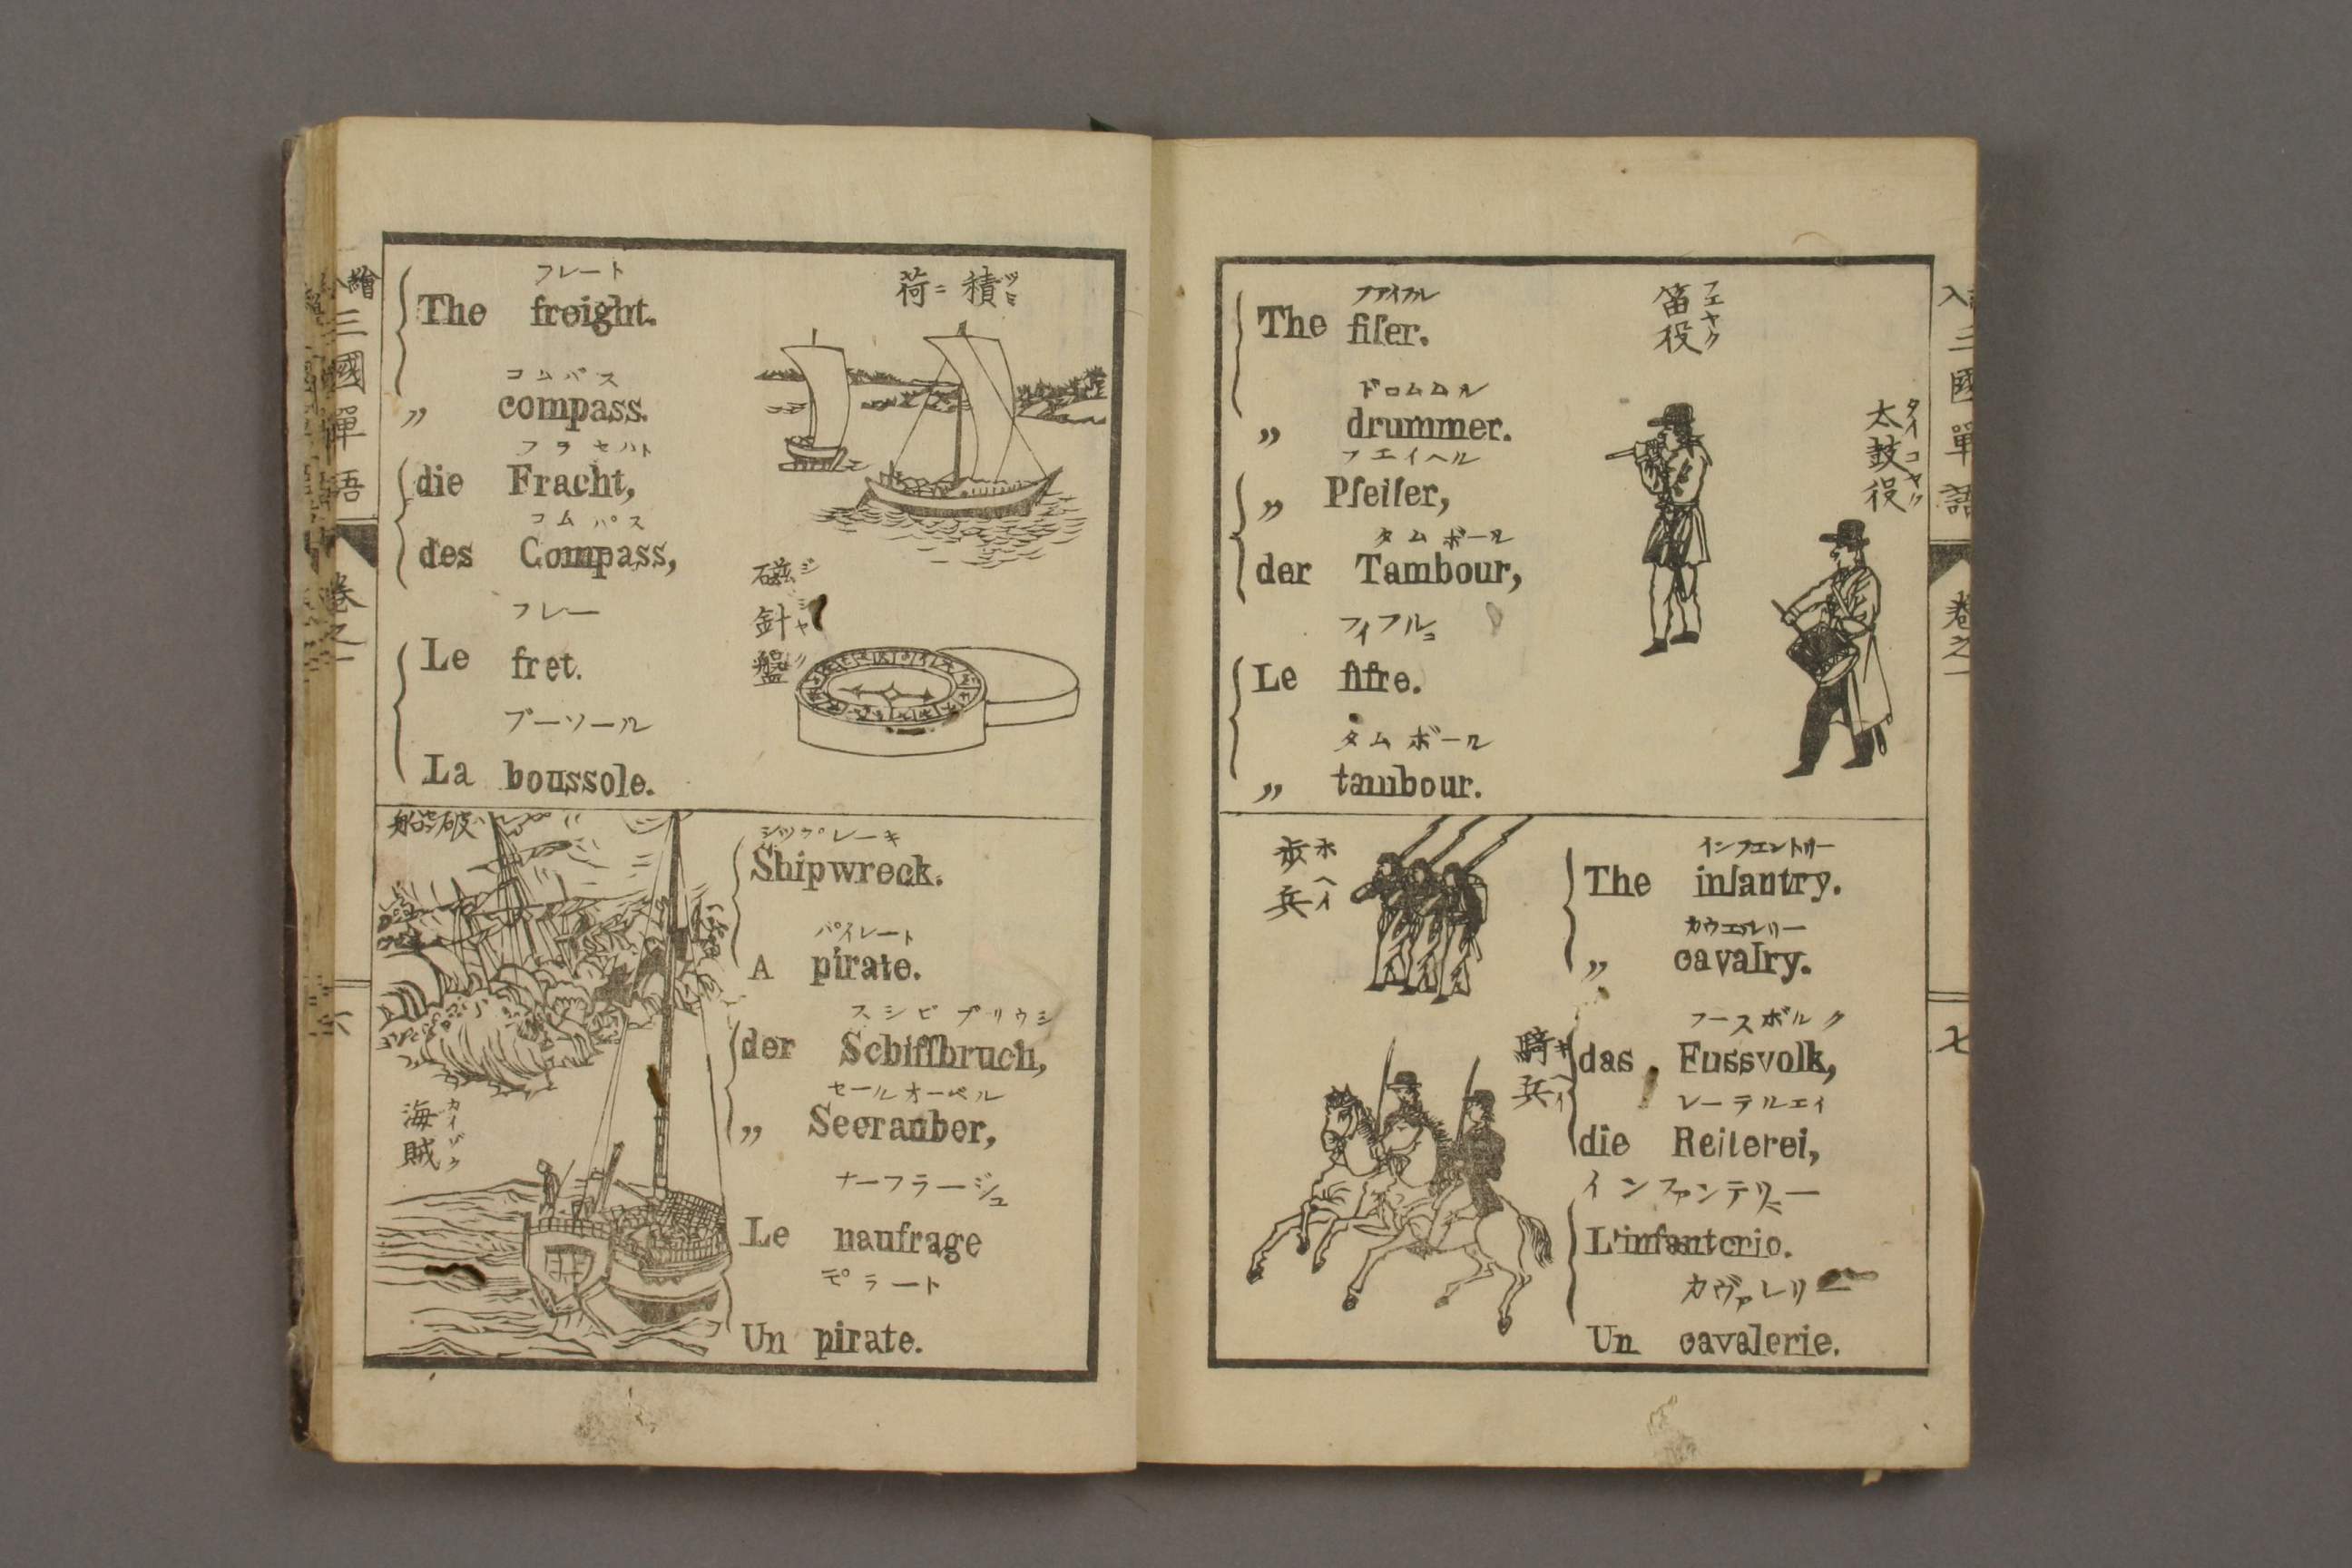 繪入三國單語
卷之一
六
フレート
The freight.
荷ニ積ツミ
コムパス
„ compass.
フラセハト
die Fracht,
コムパス
des Compass,
磁針盤
ジシヤク
フレー
Le fret.
ブーソール
La boussole.
破船
シツプレーキ
Shipwreck.
パイレート
A pirate.
スシビブリウシ
der Schiffbruch,
セールオーベル
„ Seerauber,
海賊
カイゾク
ナーフラージュ
Le naufrage
ピラート
Un pirate.
ファイフル
The fifer.
笛役
フエヤク
ドロムムル
„ drummer.
太鼓役
タイコヤク
フエイヘル
„ Pfeifer,
タムボール
der Tambour,
フイフル
Le fifre.
タムボール
„ tambour.
歩兵
ホヘイ
インフエントリー
The infantry.
カウエルリー
„ cavalry.
騎兵
キヘイ
フースボルク
das Fussvolk,
レーテルエイ
die Reiterei,
インファンテリー
L'infanterie.
カヴァレリー
Un cavalerie.
入三國單語
卷之一
七